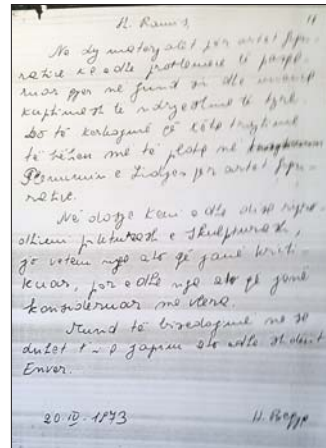 H. Ramiz,
Në dy materjalet për artet figu-
rative ka edhe probleme të papër-
 
kuptimesh të ndryshme të tyre.
Do të kërkojmë që këto trajtime
të bëhen më të plota në
Plenumin e Lidhjes për artet figu-
rative.
Në dosje keni edhe disa ripro-
dhime pikturash e skulpturash,
jo vetëm nga ato që janë kriti-
kuar, por edhe nga ato që janë
konsideruar me vlera.
Mund të bisedojmë në se
duhet t'i japim ato edhe shokut
Enver.
20.IV.1973